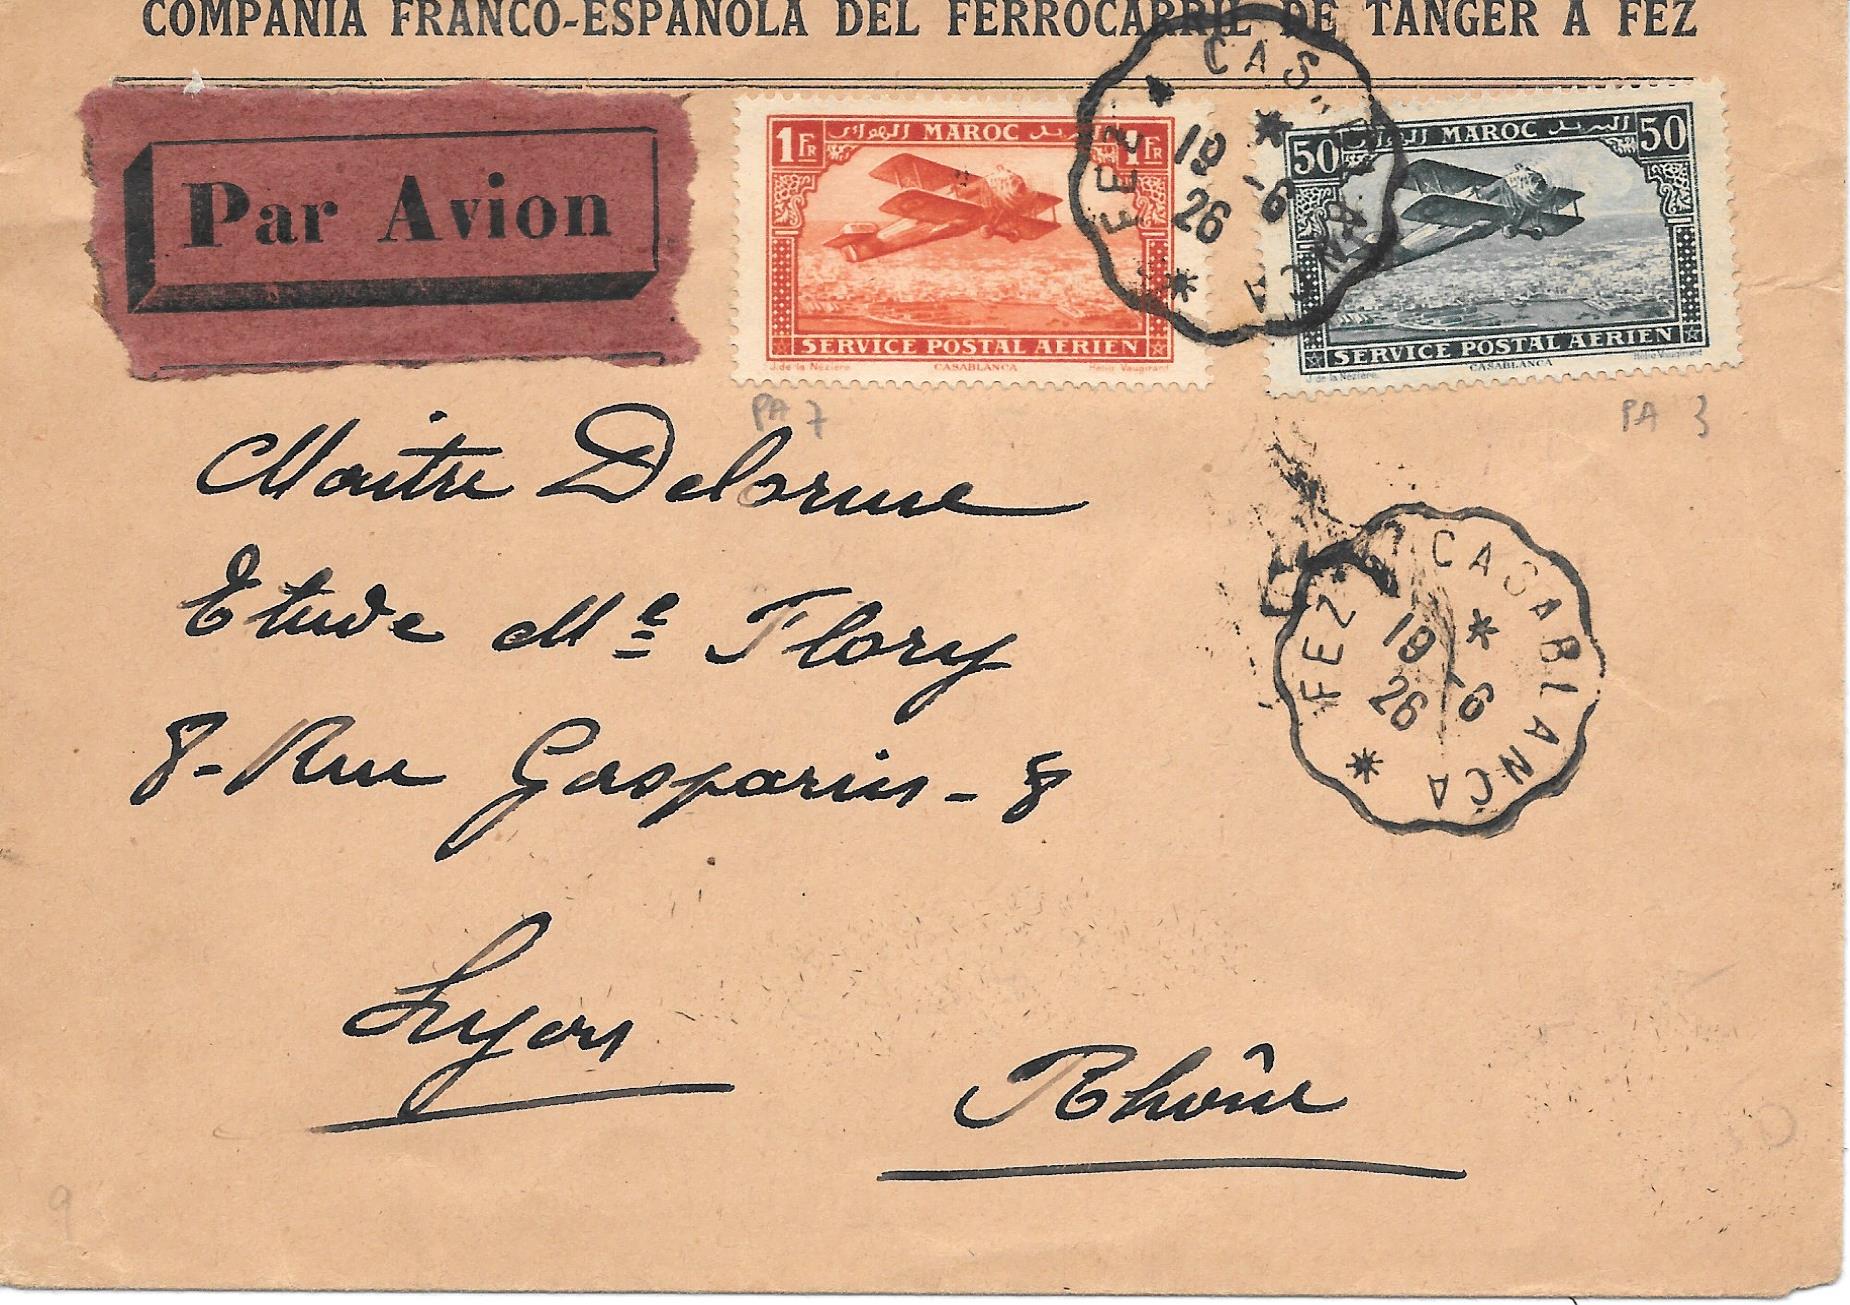 COMPAÑIA FRANCO-ESPAÑOLA DEL FERROCARRIL DE TANGER A FEZ
Par Avion
1 FR البريد MAROC الهوائي 1 FR
SERVICE POSTAL AERIEN
J. de la Nézière. CASABLANCA Hélio Vaugirard
50 البريد MAROC الهوائي 50
SERVICE POSTAL AERIEN
J. de la Nézière. CASABLANCA Hélio Vaugirard
FEZ A CASABLANCA
19 -6
26
PA 7
PA 3
Maitre Delorme
Etude Me Flory
8 - Rue Gasparin - 8
FEZ A CASABLANCA
19 -6
26
Lyon
Rhône
9